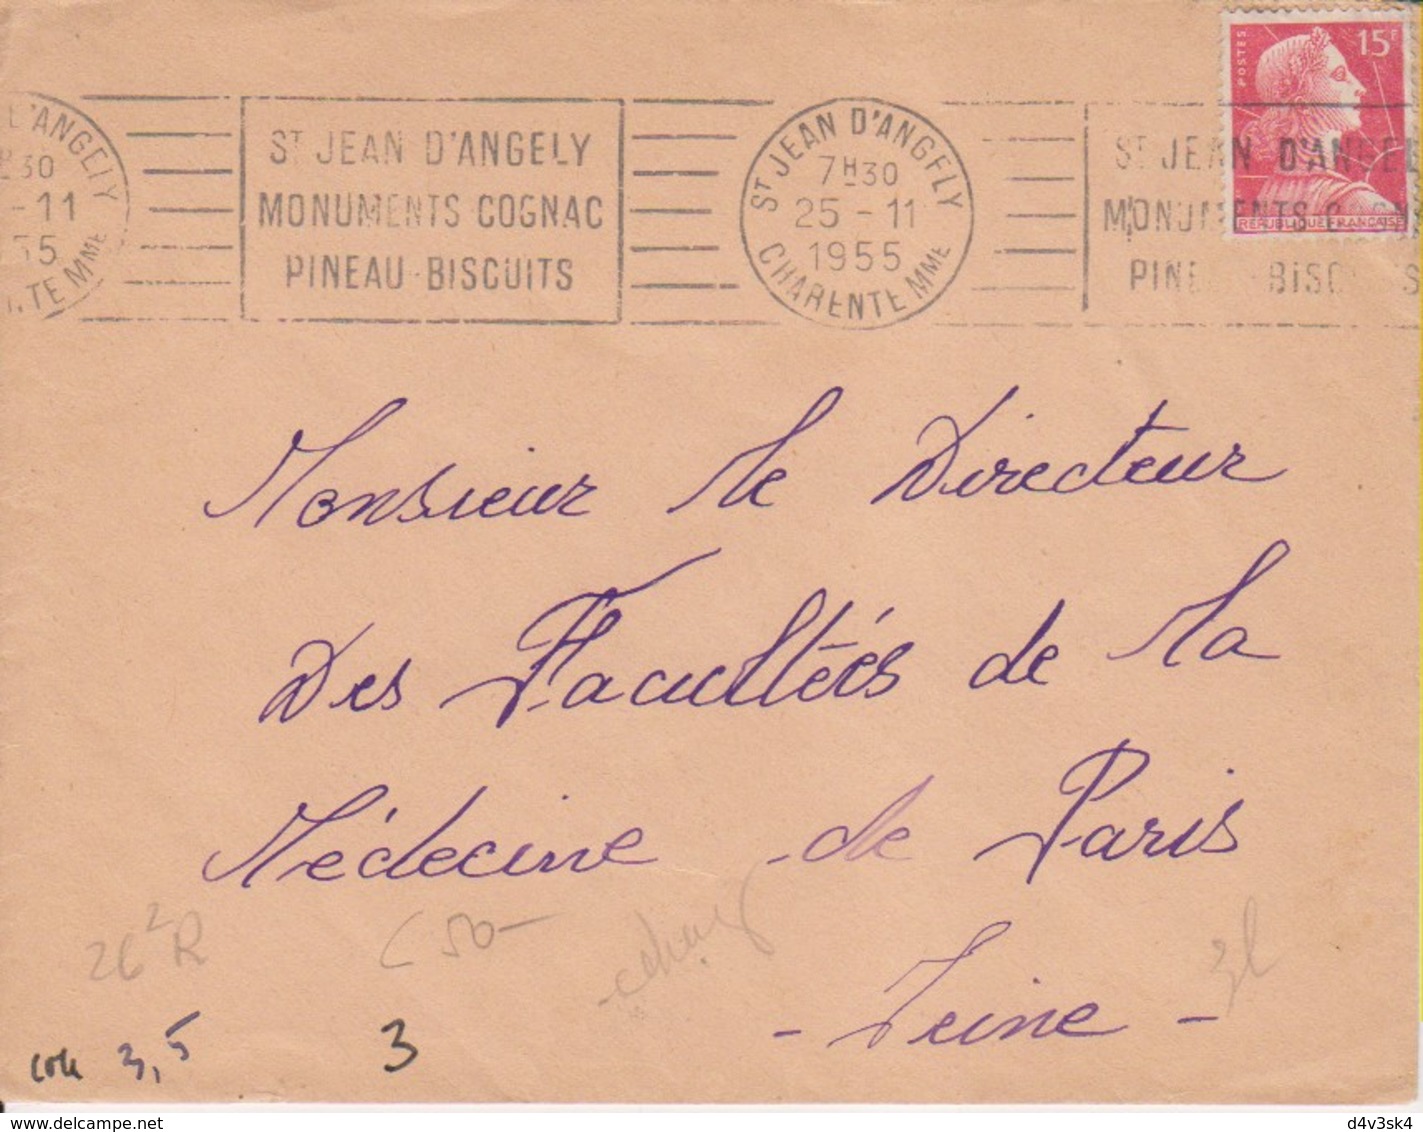 POSTES 15F
ST JEAN D'ANGELY
MONUMENTS COGNAC
PINEAU-BISCUITS
ST JEAN D'ANGELY
7H30
25-11
1955
CHARENTE MME
ST JEAN D'ANGEL
MONUMENTS COGN
PINEAU-BISCUITS
REPUBLIQUE FRANCAISE
L'ANGELY
H30
-11
55
NTE MME
Monsieur le Directeur
Des Facultés de la
Médecine de Paris
- Seine -
26²R
C 50-
3
3,5
www.delcampe.net
d4v3sk4